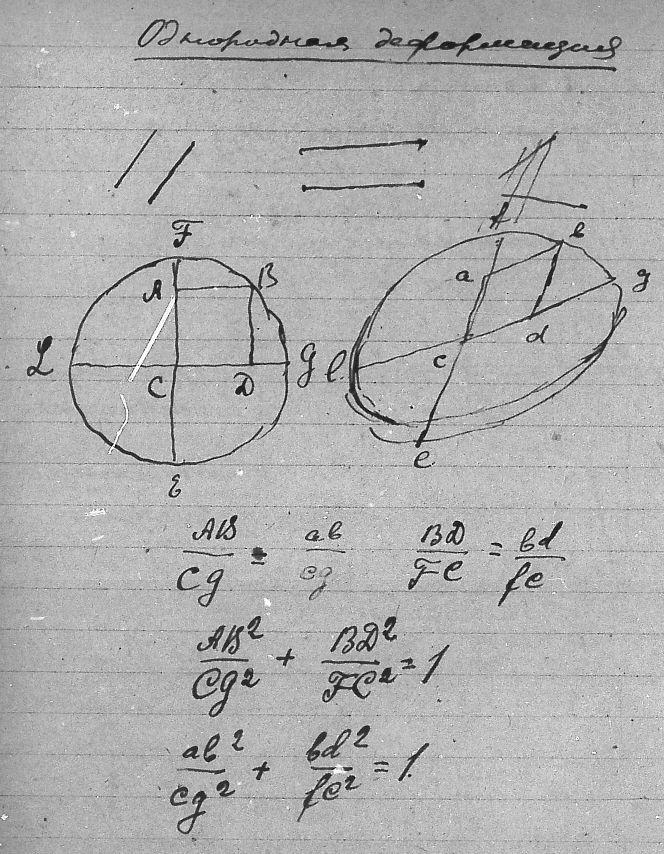 Однородная деформация
F
A B
L C D g
E
f b
a g
l c d
e
AB/Cg = ab/cg BD/FC = bd/fc
AB²/Cg² + BD²/FC² = 1
ab²/cg² + bd²/fc² = 1.